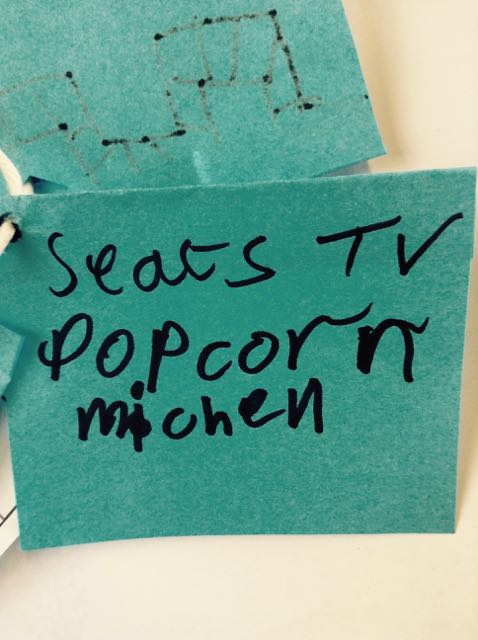 Seats TV
Popcorn
michen